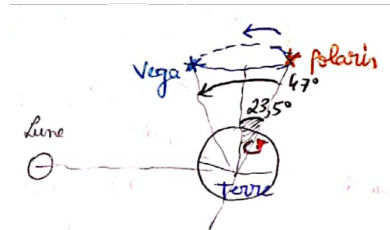 Vega
Polaris
47°
23,5°
Lune
Terre